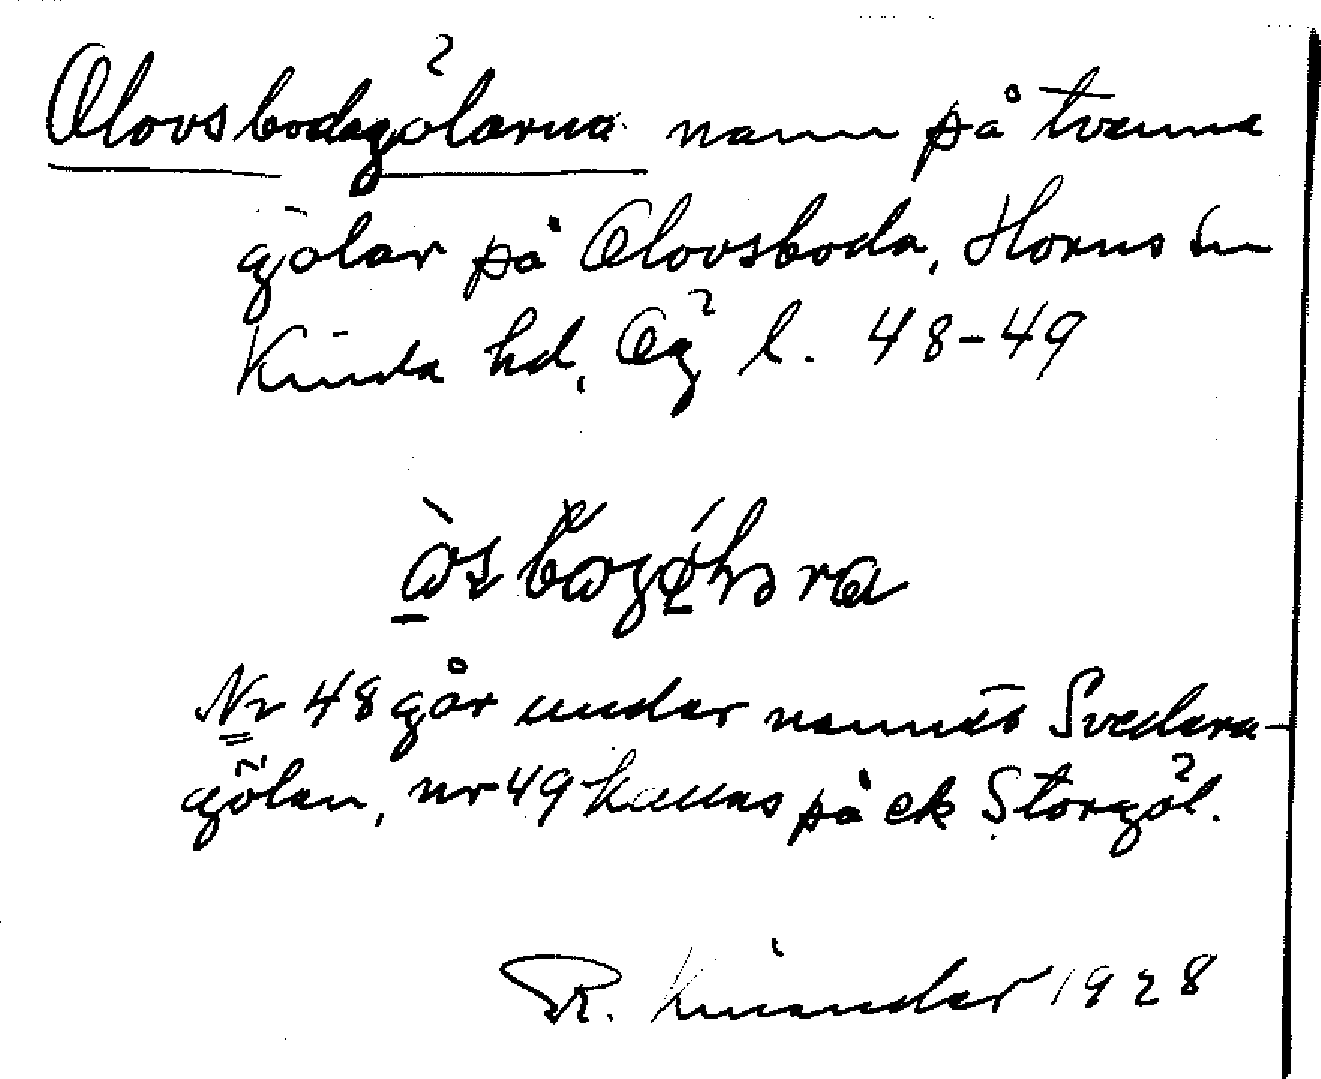 Olovsbodagölarna namn på tvenne
gölar på Olovsboda, Horns sn
Kinda hd, Ög l. 48-49
Nr 48 går under namnet Svedera-
gölen, nr 49 kallas på ek Storgöl.
R. Kinander 1928